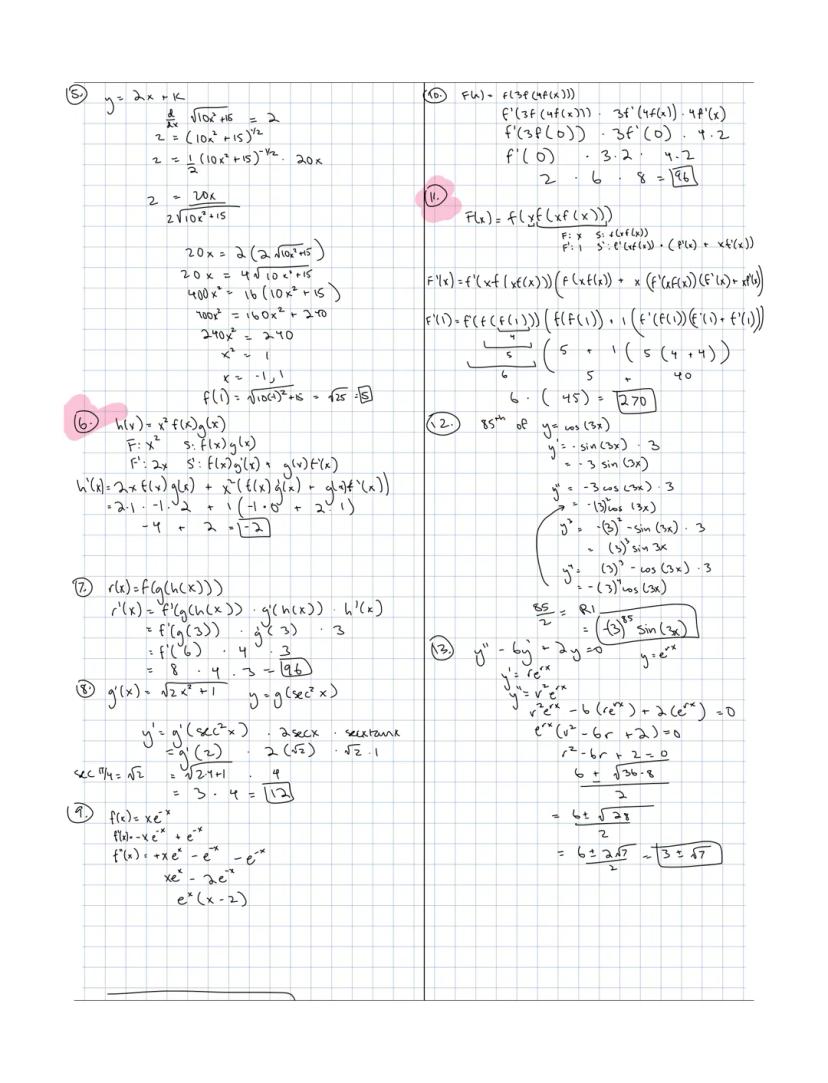 5. y = 2x + k
d/dx √(10x² + 15) = 2
2 = (10x² + 15)^(1/2)
2 = 1/2 (10x² + 15)^(-1/2) · 20x
2 = 20x / 2√(10x² + 15)
20x = 2(2√(10x² + 15))
20x = 4√(10x² + 15)
400x² = 16(10x² + 15)
400x² = 160x² + 240
240x² = 240
x² = 1
x = -1, 1
f(1) = √(10(1)² + 15) = √25 = 5
6. h(x) = x² f(x)g(x)
F: x² S: f(x)g(x)
F': 2x S': f(x)g'(x) + g(x)f'(x)
h'(x) = 2x f(x)g(x) + x²(f(x)g'(x) + g(x)f'(x))
= 2·1 · -1 · 2 + 1(-1·0 + 2·1)
-4 + 2 = -2
7. r(x) = f(g(h(x)))
r'(x) = f'(g(h(x)) · g'(h(x)) · h'(x)
= f'(g(3)) · g'(3) · 3
= f'(6) · 4 · 3
= 8 · 4 · 3 = 96
8. g'(x) = √(2x² + 1) y = g(sec²x)
y' = g'(sec²x) · 2secx · secxtanx
= g'(2) · 2(√2) · √2 · 1
sec π/4 = √2 = √(2·4+1) · 4
= 3 · 4 = 12
9. f(x) = xe^-x
f'(x) = -xe^-x + e^-x
f''(x) = +xe^x - e^-x - e^-x
xe^x - 2e^-x
e^x (x - 2)
10. F(x) = f(3f(4f(x)))
f'(3f(4f(x))) · 3f'(4f(x)) · 4f'(x)
f'(3f(0)) · 3f'(0) · 4·2
f'(0) · 3·2 · 4·2
2 · 6 · 8 = 96
11.
F(x) = f(xf(xf(x)))
F: x S: f(xf(x))
F': 1 S': f'(xf(x)) · (f'(x) + xf'(x))
F'(x) = f'(xf(xf(x)))(f(xf(x)) + x(f'(xf(x))(f'(x) + xf'(x))
F'(1) = f'(f(f(1)))(f(f(1)) + 1(f'(f(1))(f'(1) + f'(1)))
4
5 (5 + 1(5(4+4))
6 5 + 40
6 · (45) = 270
12. 85th of y = cos(3x)
y' = - sin(3x) · 3
= -3 sin(3x)
y'' = -3 cos(3x) · 3
= -(3)² cos(3x)
y³ = -(3)² - sin(3x) · 3
= (3)³ sin 3x
y'''' = (3)³ - cos(3x) · 3
= -(3)⁴ cos(3x)
85/2 = R1
= (-3)^85 sin(3x)
13. y'' - 6y' + 2y = 0 y = e^rx
y' = re^rx
y'' = r²e^rx
r²e^rx - 6(re^rx) + 2(e^rx) = 0
e^rx (r² - 6r + 2) = 0
r² - 6r + 2 = 0
6 ± √(36-8) / 2
= 6 ± √28 / 2
= 6 ± 2√7 / 2 = 3 ± √7